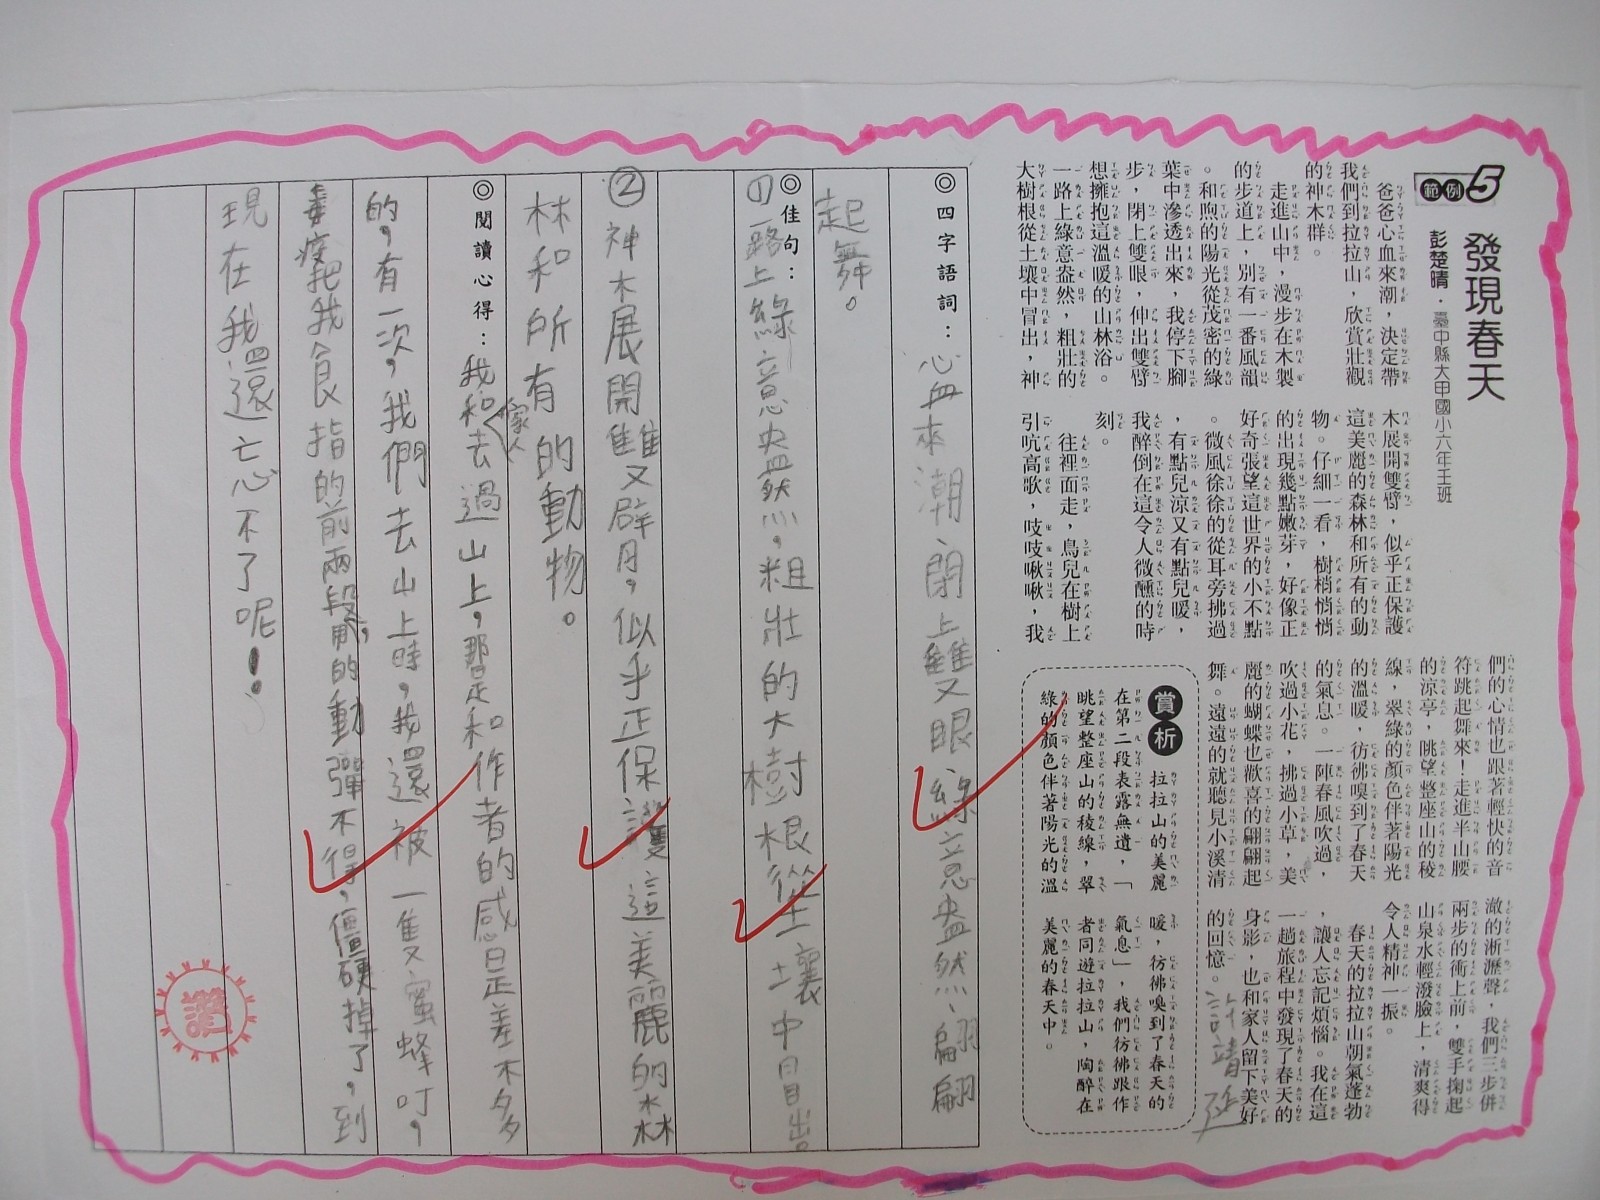 5
範例
發現春天
彭楚晴．臺中縣大甲國小六年壬班
爸爸心血來潮，決定帶
我們到拉拉山，欣賞壯觀
的神木群。
走進山中，漫步在木製
的步道上，別有一番風韻
。和煦的陽光從茂密的綠
葉中滲透出來，我停下腳
步，閉上雙眼，伸出雙臂
想擁抱這溫暖的山林浴。
一路上綠意盎然，粗壯的
大樹根從土壤中冒出，神
木展開雙臂，似乎正保護
這美麗的森林和所有的動
物。仔細一看，樹梢悄悄
的出現幾點嫩芽，好像正
好奇張望這世界的小不點
。微風徐徐的從耳旁拂過
，有點兒涼又有點兒暖，
我醉倒在這令人微醺的時
刻。
往裡面走，鳥兒在樹上
引吭高歌，吱吱啾啾，我
們的心情也跟著輕快的音
符跳起舞來！走進半山腰
的涼亭，眺望整座山的稜
線，翠綠的顏色伴著陽光
的溫暖，彷彿嗅到了春天
的氣息。一陣春風吹過，
吹過小花，拂過小草，美
麗的蝴蝶也歡喜的翩翩起
舞。遠遠的就聽見小溪清
澈的淅瀝聲，我們三步併
兩步的衝上前，雙手掬起
山泉水輕潑臉上，清爽得
令人精神一振。
春天的拉拉山朝氣蓬勃
，讓人忘記煩惱。我在這
一趟旅程中發現了春天的
身影，也和家人留下美好
的回憶。
賞析
拉拉山的美麗
在第二段表露無遺，「
眺望整座山的稜線，翠
綠的顏色伴著陽光的溫
暖，彷彿嗅到了春天的
氣息」，我們彷彿跟作
者同遊拉拉山，陶醉在
美麗的春天中。
◎四字語詞：心血來潮、閉上雙眼、綠意盎然、翩翩
起舞。
◎佳句：
①一路上綠意盎然，粗壯的大樹根從土壤中冒出。
②神木展開雙臂，似乎正保護這美麗的森
林和所有的動物。
◎閱讀心得：我和家人去過山上，那是和作者的感覺是差不多
的，有一次，我們去山上時，我還被一隻蜜蜂叮，
把我食指的前兩段，的動彈不得，僵硬掉了，到
現在我還忘不了呢！
讚